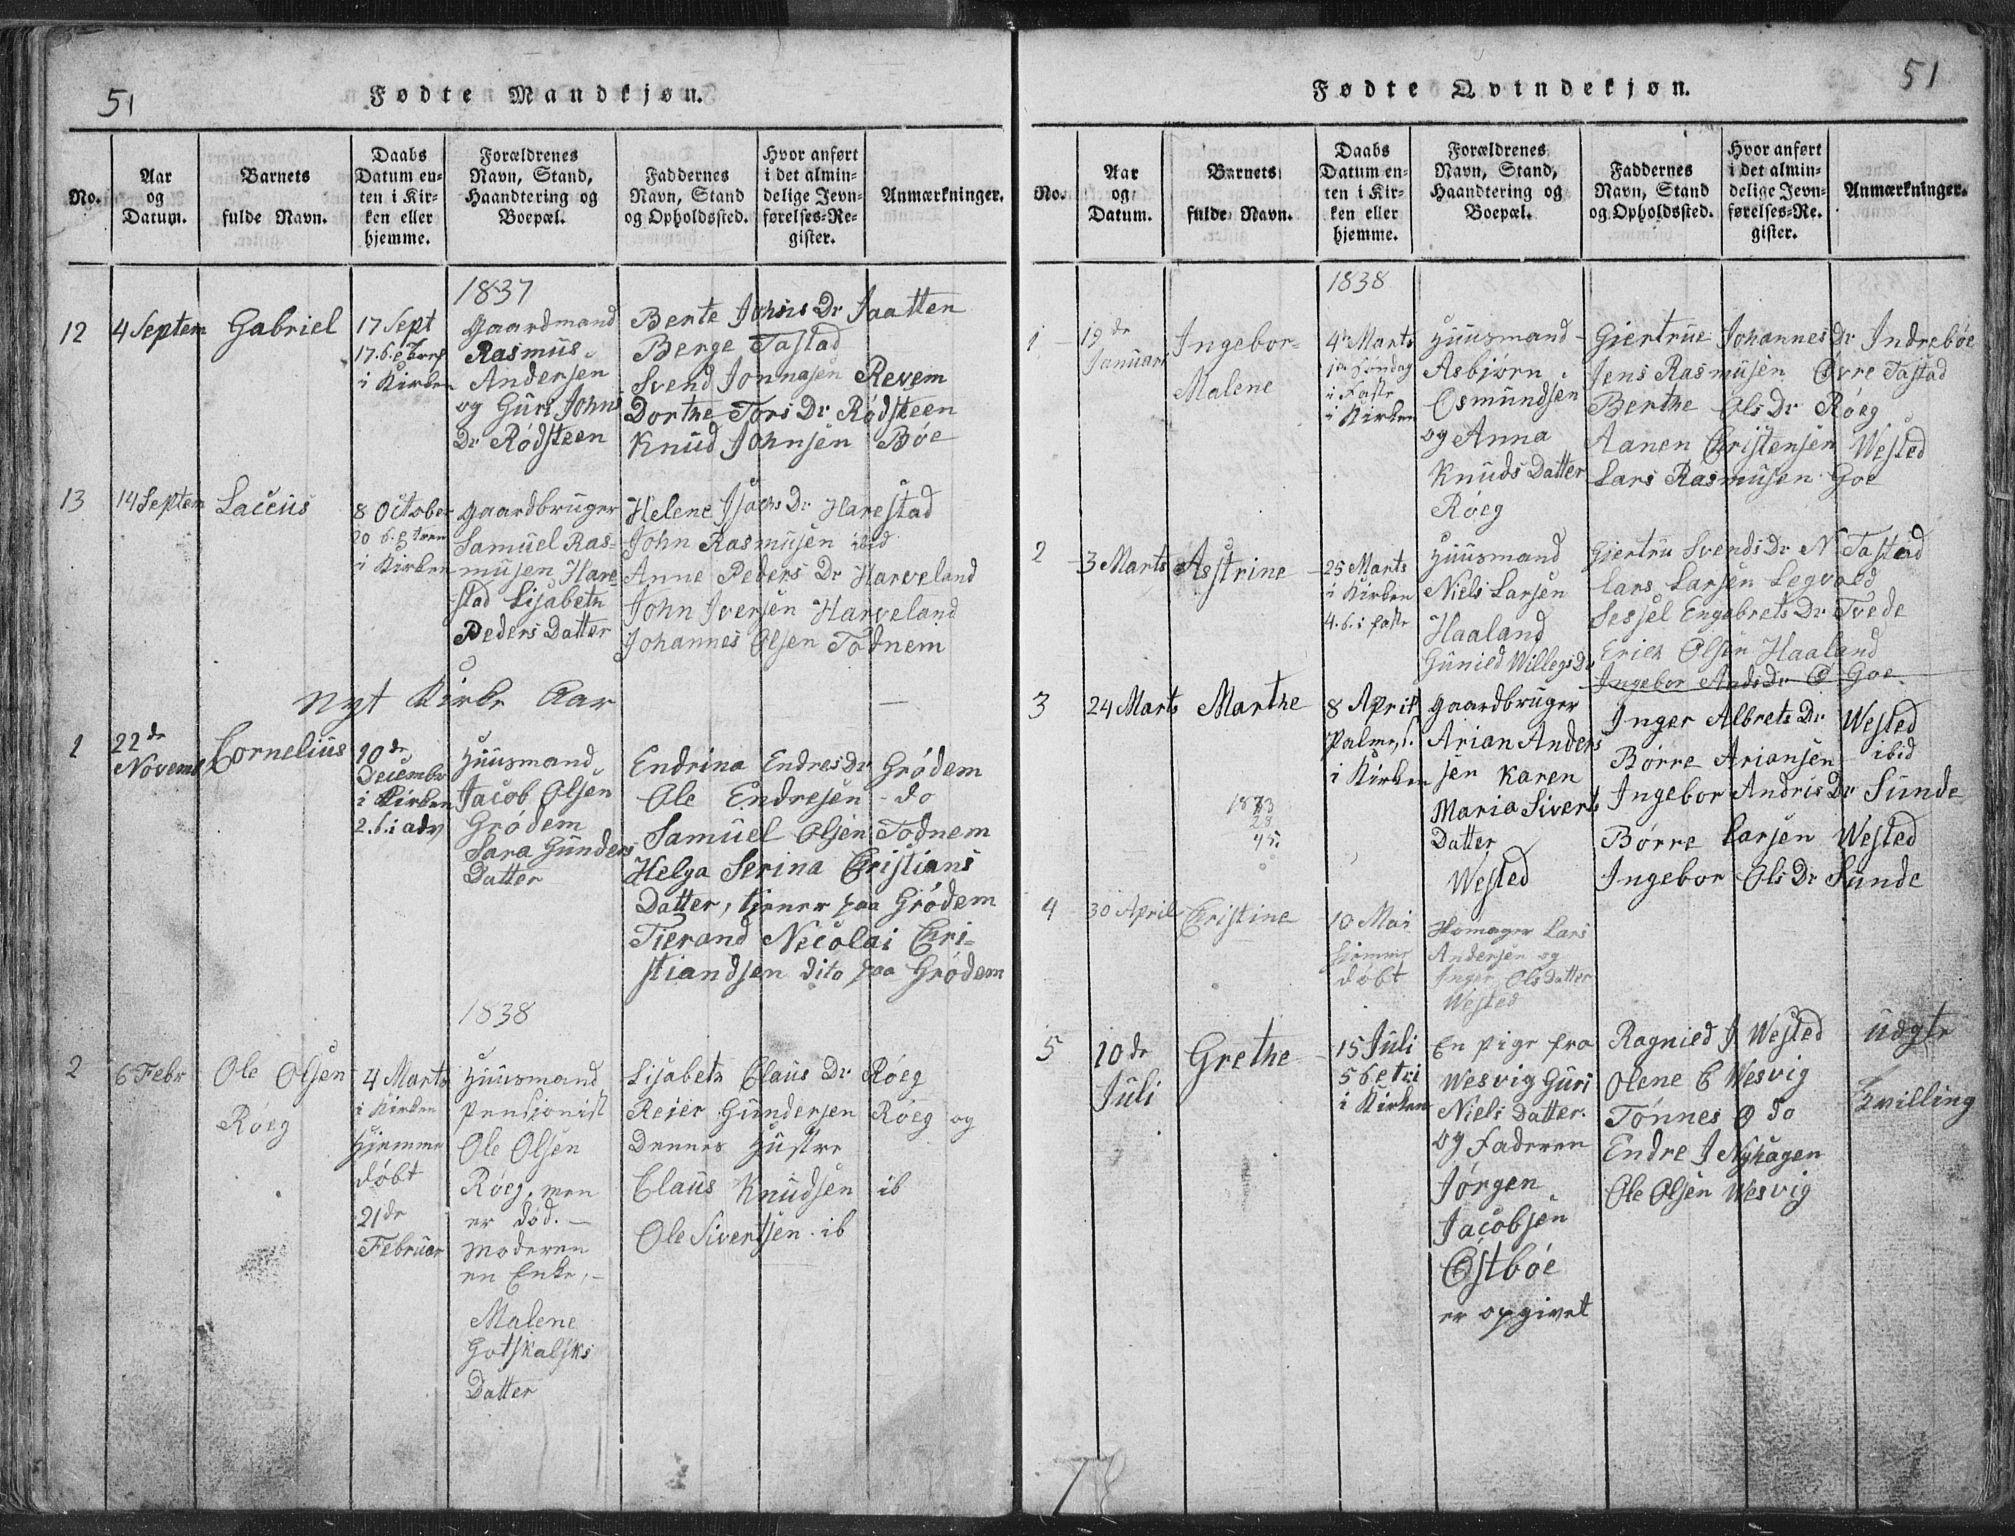 51
Fødte Mandkjøn.
No.
Aar
og
Datum.
Barnets
fulde Navn.
Daabs
Datum en-
ten i Kir-
ken eller
hjemme.
Forældrenes
Navn, Stand,
Haandtering og
Boepæl.
Faddernes
Navn, Stand
og Opholdssted.
Hvor anført
i det almin-
delige Jevn-
førelses-Re-
gister.
Anmærkninger.
1837
12
4 Septem
Gabriel
17 Sept
i Kirken
Gaardmand
Rasmus
Andersen
og Guri Johns
Dr Rødsteen
Bente Johns Dr Jaatten
Berge Tastad
Svend Jonnasen Revem
Dorthe Tors Dr Rødsteen
Knud Johnsen Bøe
13
14 Septem
8 October
i Kirken
Gaardbruger
Samuel Ras-
musen Hare
stad Lisabeth
Peders Datter
Helene Isachs Dr Harestad
John Rasmusen ibid
Anne Peders Dr Harveland
John Iversen Harveland
Johannes Olsen Todnem
Nyt Kirke Aar
1
22de
Novemb
Cornelius
10de
Decembr
i Kirken
2. s. i adv
Huusmand
Jacob Olsen
Grødem
Sara Gunders
Datter
Endrina Endres Dr Grødem
Ole Endresen - do
Samuel Olsen Todnem
Helga Serina Cristians
Datter, tjener paa Grødem
Tierand Necolai Cri-
stiandsen dito paa Grødem
1838
2
6 Febr
Ole Olsen
Røeg
4 Marts
i Kirken
Hjemme
døbt
21de
Februar
Huusmand
Pensionist
Ole Olsen
Røeg, men
er død. -
Moderen
en Enke, -
Malene
Gotskalsks
Datter
Lisabeth Claus Dr Røeg
Reier Gundersen Røeg og
Dennes Hustre
Claus Knudsen ib
Ole Sivertsen ib
51
Fødte Qvindekjøn.
No.
Aar
og
Datum.
Barnets
fulde Navn.
Daabs
Datum en-
ten i Kir-
ken eller
hjemme.
Forældrenes
Navn, Stand,
Haandtering og
Boepæl.
Faddernes
Navn, Stand
og Opholdssted.
Hvor anført
i det almin-
delige Jevn-
førelses-Re-
gister.
Anmærkninger.
1838
1
19de
Januari
Ingebor-
Malene
4de Marts
1ste Søndag
i Faste
i Kirken
Huusmand
Asbjørn
Osmundsen
og Anna
Knuds Datter
Røeg
Giertrue Johannes Dr Indrebøe
Jens Rasmusen Øvre Tastad
Berthe Ols Dr Røeg
Aanen Christensen Wested
Lars Rasmusen Goe
2
3 Marts
Asstrine
25 Marts
i Kirken
4. s. i faste
Huusmand
Niels Larsen
Haaland
Gunied Willegs Dr
Giertru Svends Dr N Tastad
Lars Larsen Legvold
Sessel Engebrets Dr Tvede
Erich Olsen Haaland
Ingebor Ands Dr Goe.
3
24 Marts
Marthe
8 April
Palme s.
i Kirken
Gaardbruger
Arian Anders
sen Karen
Maria Siverts
Datter
Wested
Inger Albrets Dr Wested
Børre Ariansen ibid
Ingebor Andris Dr Sunde
Børre Larsen Wested
Ingebor Ols Dr Sunde
1883
28
45
4
30 April
Cristine
10 Mai
Hjemme
døbt
Lars
Andersen og
Inger Olsdatter
Wested
5
10de
Juli
Grethe
15 Juli
i Kirken
En pige fra
Wesvig Guri
Niels Datter.
og Faderen
Jørgen
Jacobsen
Østbøe
er opgivet
Ragnied J Wested
Olene C Wesvig
Tønnes O do
Endre J Nyhagen
Ole Olsen Wesvig
Udgte
Tvilling